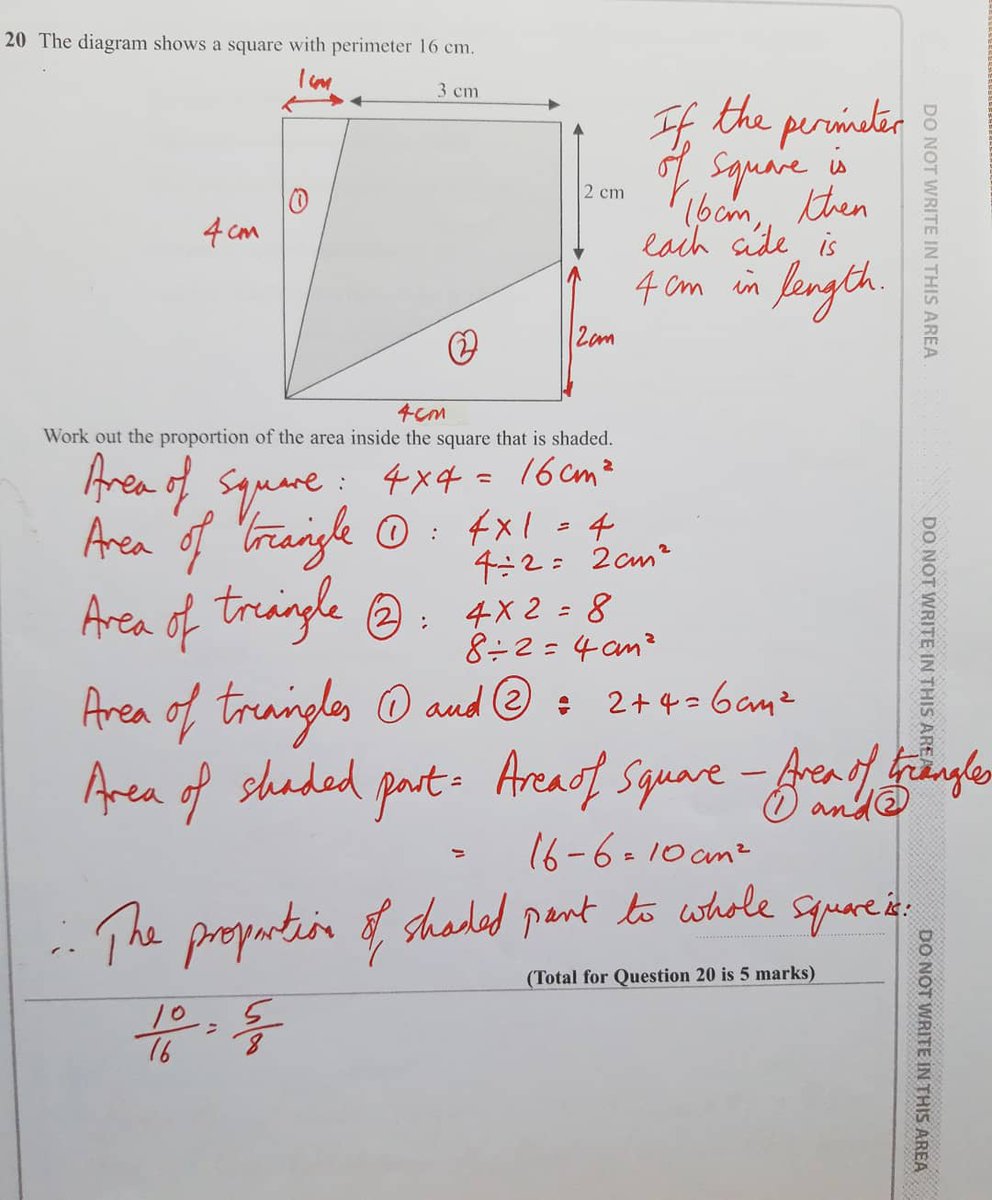 20 The diagram shows a square with perimeter 16 cm.
1cm
3 cm
If the perimeter
of square is
16cm, then
each side is
4cm in length.
①
2 cm
4cm
②
2cm
4cm
Work out the proportion of the area inside the square that is shaded.
Area of square : 4×4 = 16cm²
Area of triangle ① : 4×1 = 4
4÷2 = 2cm²
Area of triangle ② : 4×2 = 8
8÷2 = 4cm²
Area of triangles ① and ② : 2+4=6cm²
Area of shaded part = Area of Square – Area of triangles
① and ②
= 16-6=10cm²
∴ The proportion of shaded part to whole square is:
(Total for Question 20 is 5 marks)
10/16 = 5/8
DO NOT WRITE IN THIS AREA
DO NOT WRITE IN THIS AREA
DO NOT WRITE IN THIS AREA